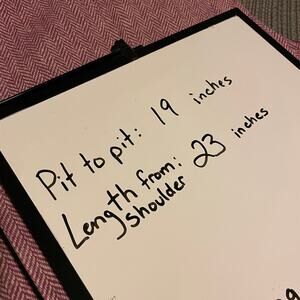 Pit to pit: 19 inches
Length from: 23 inches
shoulder